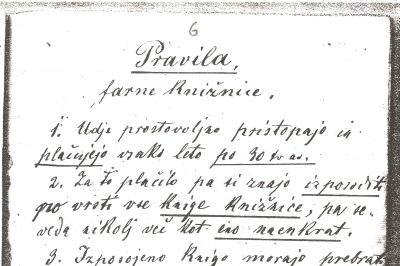 6
Pravila,
farne knižnice.
1. Udje prostovoljno pristopajo in
plačujejo vsako leto po 30 kr. av.
2. Za to plačilo pa si znajo izposoditi
po vrsti vse knige knižnice, pa se-
veda nikolj več kot eno naenkrat.
3. Izposojeno knigo morajo prebrat